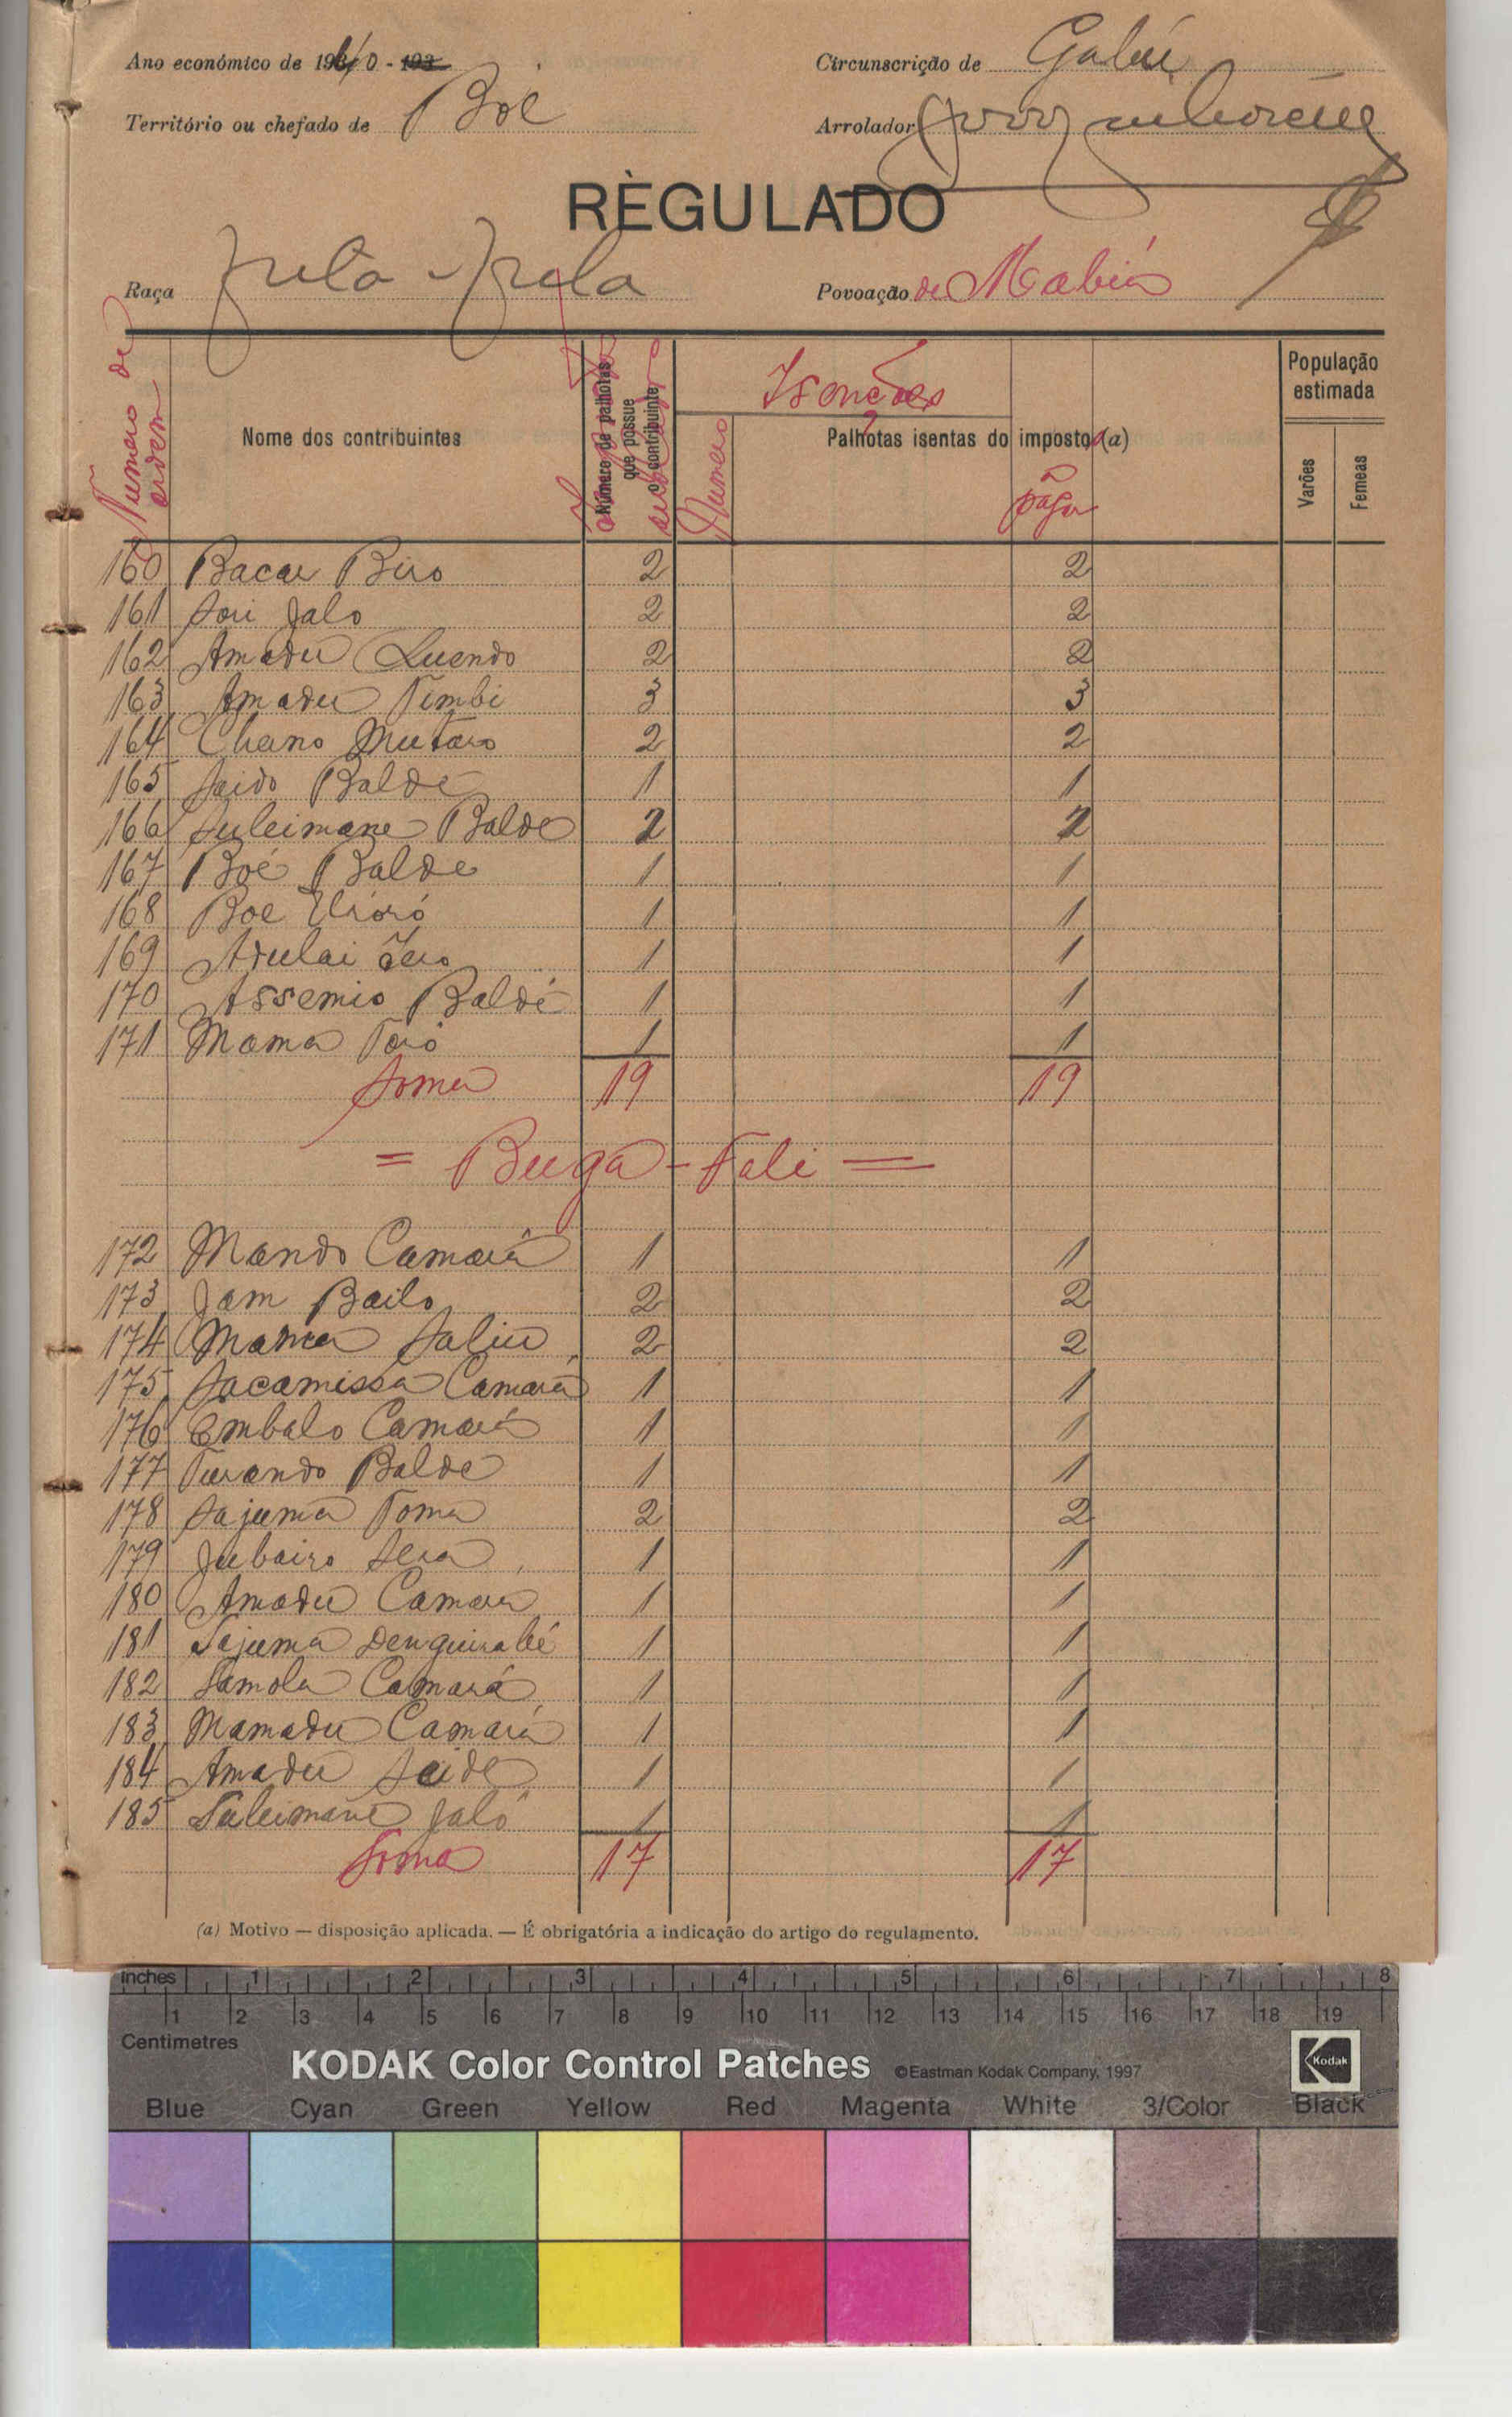 Ano económico de 1940 - 193
Circunscrição de Gabú
Território ou chefado de Boé
Arrolador
RÈGULADO
Raça
Povoação de Mabiá
Numero de ordem
Nome dos contribuintes
Número de palhotas que possue o contribuinte
Isenções
Numero
Palhotas isentas do imposto (a)
a pagar
População estimada
Varões
Femeas
160 Bacar Biro 2 2
161 Sori Jaló 2 2
162 Amadu Quendo 2 2
163 Amadu Timbi 3 3
164 Cherno Mutaro 2 2
165 Saido Baldé 1 1
166 Suleimane Balde 2 2
167 Boé Balde 1 1
168 Boe 1 1
169 1 1
170 Assemio Baldé 1 1
171 Mama Toró 1 1
Soma 19 19
= Buga - Fali =
172 Mando Camará 1 1
173 Jam Bailo 2 2
174 Mama Saliu 2 2
175 Sacamissa Camará 1 1
176 Embalo Camará 1 1
177 Turando Balde 1 1
178 Sajuma Toma 2 2
179 Jubairo Sera 1 1
180 Amadu Camara 1 1
181 Sajuma 1 1
182 Samola Camará 1 1
183 Mamadu Camará 1 1
184 Amadu Saide 1 1
185 Suleimane Jaló 1 1
Soma 17 17
(a) Motivo — disposição aplicada. — É obrigatória a indicação do artigo do regulamento.
inches 1 2 3 4 5 6 7 8
1 2 3 4 5 6 7 8 9 10 11 12 13 14 15 16 17 18 19
Centimetres
KODAK Color Control Patches ©Eastman Kodak Company, 1997 Kodak
Blue Cyan Green Yellow Red Magenta White 3/Color Black